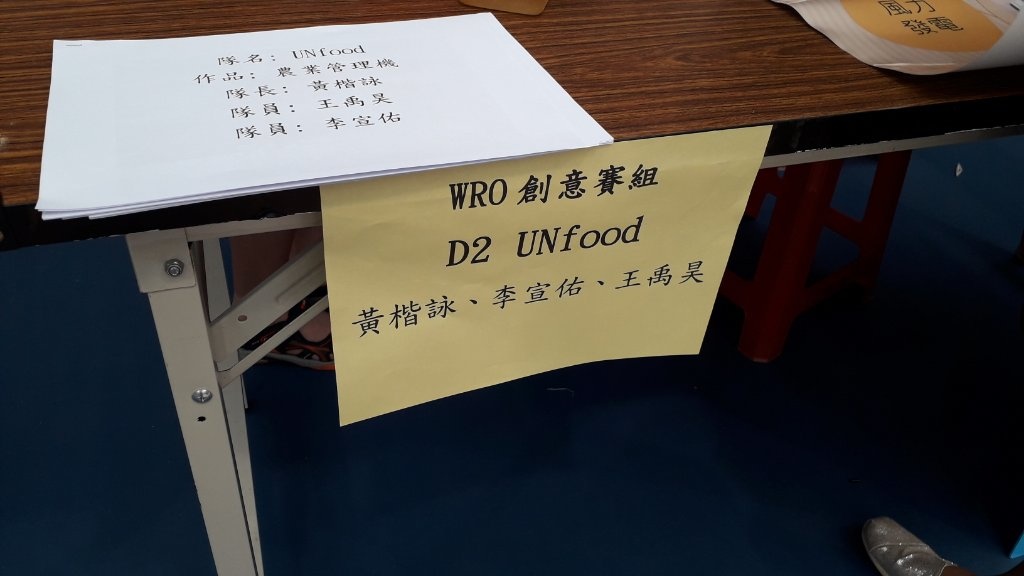 隊名: UNfood
作品: 農業管理機
隊長: 黃楷詠
隊員: 王禹昊
隊員: 李宣佑
風力
發電
WRO 創意賽組
D2 UNfood
黃楷詠、李宣佑、王禹昊